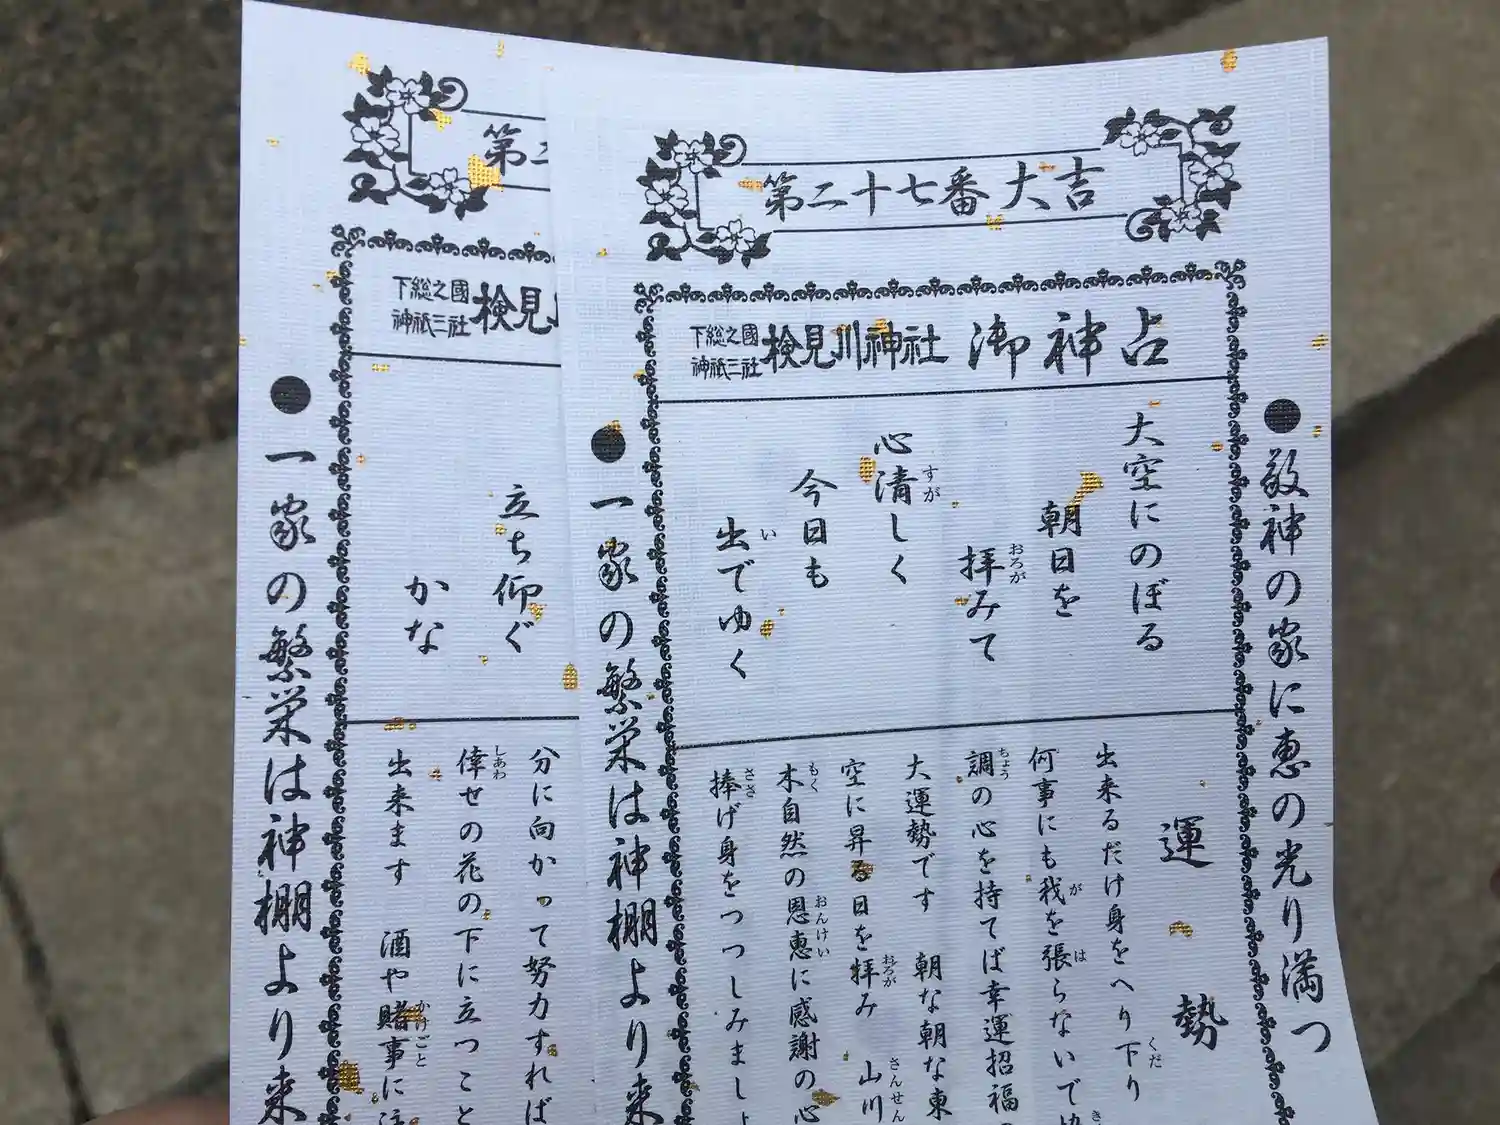 第二十七番 大吉
下総之國
神祇三社
検見川神社 御神占
●敬神の家に恵の光り満つ
大空にのぼる
朝日を
拝みて
心清しく
今日も
出でゆく
運勢
出来るだけ身をへり下り
何事にも我を張らないで
調の心を持てば幸運招福
大運勢です 朝な朝な東
空に昇る日を拝み 山川
木自然の恩恵に感謝の心
捧げ身をつつしみまし
●一家の繁栄は神棚より来
第二
下総之國
神祇三社
検見
立ち仰ぐ
かな
分に向かって努力すれば
倖せの花の下に立つこと
出来ます 酒や賭事に注
●一家の繁栄は神棚より来